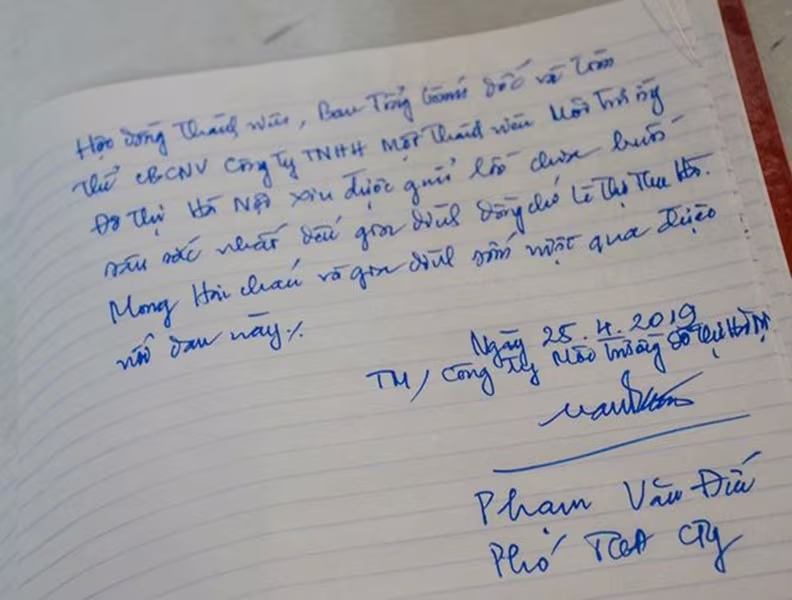 Hội đồng thành viên, Ban Tổng Giám đốc và toàn
thể CBCNV Công ty TNHH Một thành viên Môi trường
Đô thị Hà Nội xin được gửi lời chia buồn
sâu sắc nhất đến gia đình đồng chí Lê Thị Thu Hà.
Mong Hai cháu và gia đình sớm vượt qua được
nỗi đau này./.
Ngày 25.4.2019
TM/ Công ty Môi trường Đô thị Hà Nội
Phạm Văn Đức
Phó TGĐ CTy